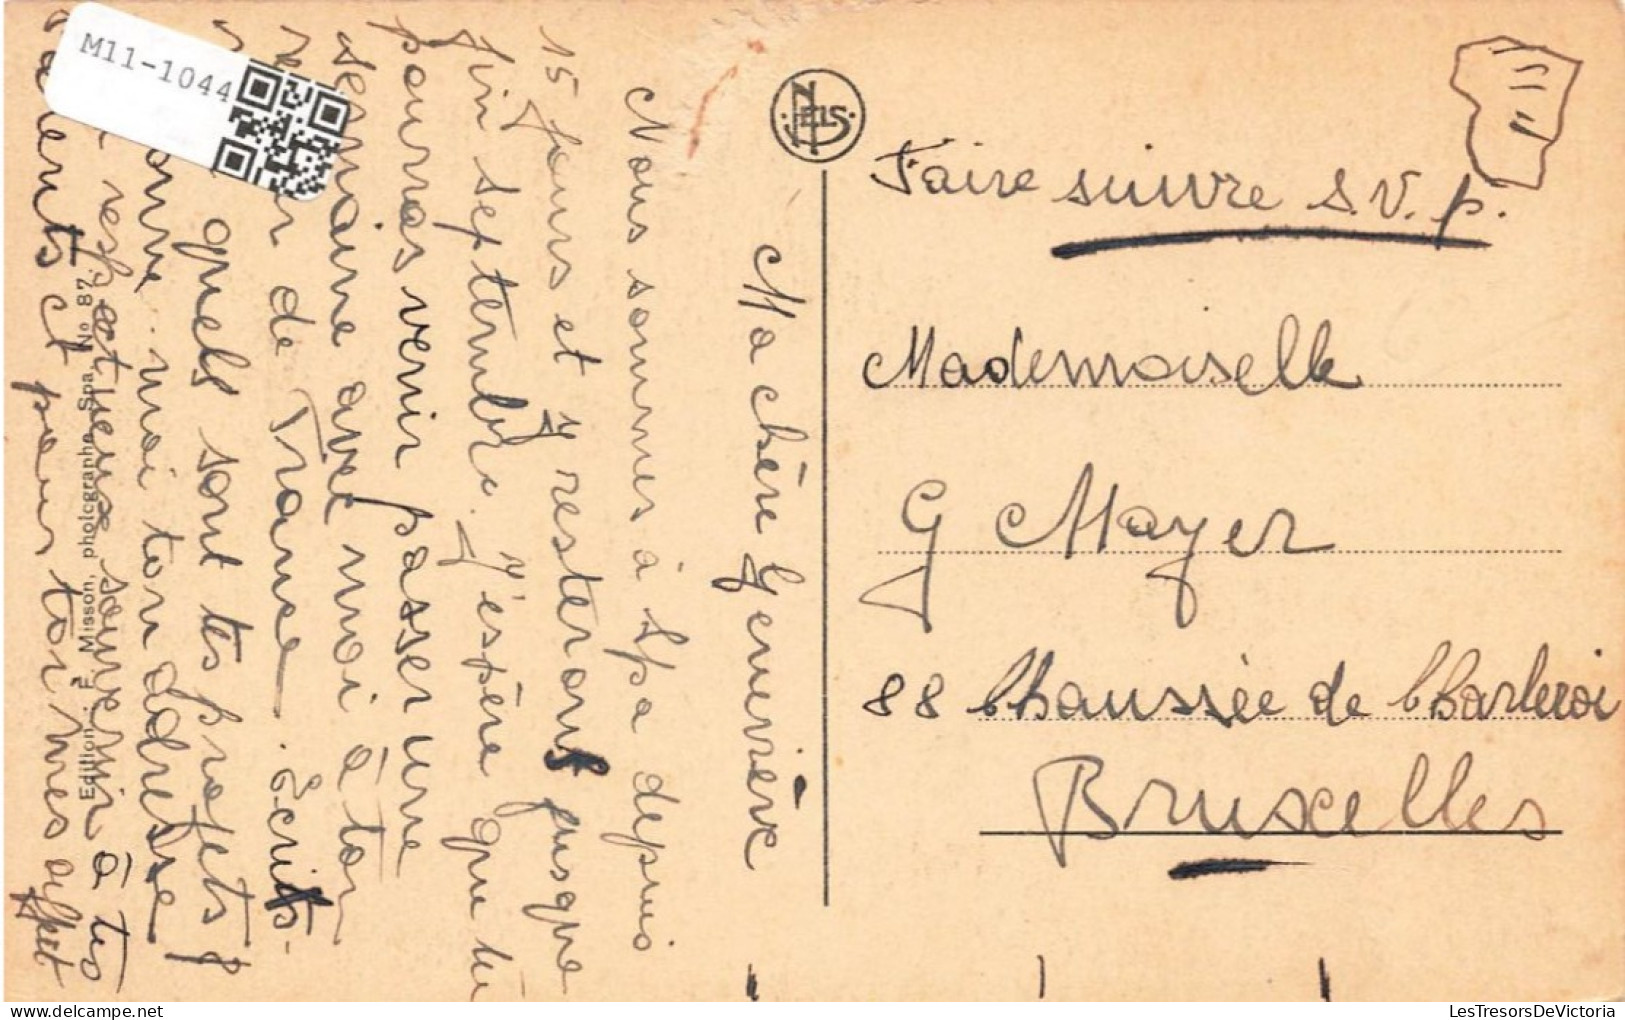 Ma chère Genevière
Nous sommes à Spa depuis
15 jours et y resterons jusque
fin septembre. J'espère que tu
pourras venir passer une
semaine avec moi à ton
de France. Ecris-
quels sont tes projets &
moi ton adresse
respectueux souvenir à tes
et pour toi mes
Edition: E. Misson, photographe, Spa. No 87.
NELS
Faire suivre S.V.p.
Mademoiselle
G Mayer
88 Chaussée de Charleroi
Bruxelles
M11-1044
LesTresorsDeVictoria